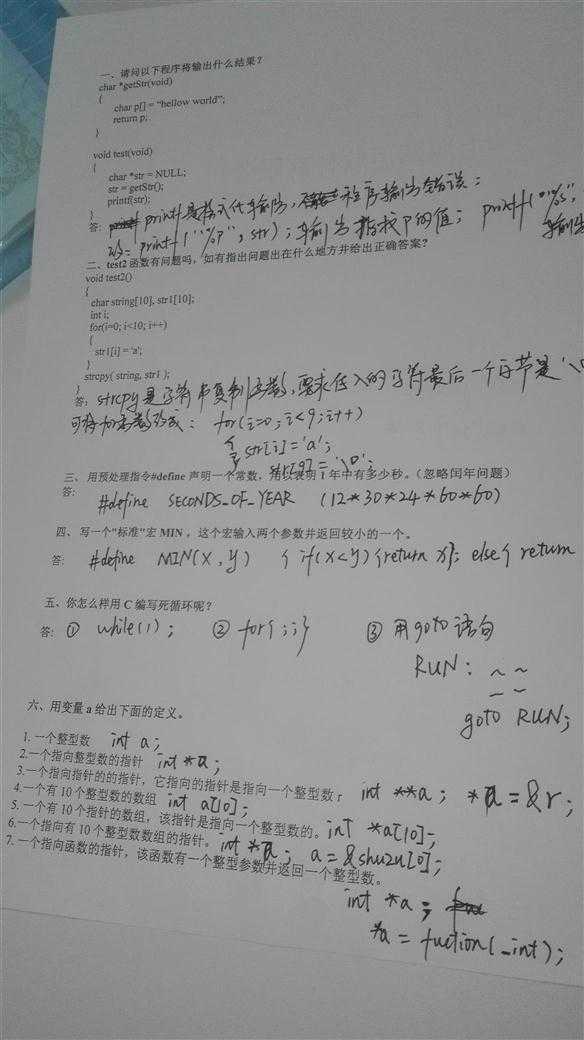 一、请问以下程序将输出什么结果？
char *getStr(void)
{
char p[] = "hellow world";
return p;
}
void test(void)
{
char *str = NULL;
str = getStr();
printf(str);
}
答: printf是格式化输出, 程序输出错误:
改= printf("%p", str); 输出指校P的值; printf("%s",
输出
二、test2 函数有问题吗，如有指出问题出在什么地方并给出正确答案？
void test2()
{
char string[10], str1[10];
int i;
for(i=0; i<10; i++)
{
str1[i] = 'a';
}
strcpy( string, str1 );
}
答: strcpy是字符串复制函数, 要求传入的字符最后一个字节是'\0
可将加函数改成: for(i=0; i<9; i++)
{ str[i]='a';
} str[9]='\0';
三、 用预处理指令#define 声明一个常数，用以表明 1 年中有多少秒。（忽略闰年问题）
答: #define SECONDS_OF_YEAR (12*30*24*60*60)
四、 写一个"标准"宏 MIN ，这个宏输入两个参数并返回较小的一个。
答: #define MIN(X, Y) { if(X<Y) {return X}; else { return
五、你怎么样用 C 编写死循环呢？
答: ① while(1); ② for{;;} ③ 用goto语句
RUN: ~ ~
~ ~
goto RUN;
六、用变量 a 给出下面的定义。
1. 一个整型数 int a;
2.一个指向整型数的指针 int *a;
3.一个指向指针的的指针，它指向的指针是指向一个整型数 r int **a; *a = &r;
4.一个有 10 个整型数的数组 int a[10];
5. 一个有 10 个指针的数组，该指针是指向一个整型数的。 int *a[10];
6.一个指向有 10 个整型数数组的指针。 int *a; a = &shuzu[0];
7. 一个指向函数的指针，该函数有一个整型参数并返回一个整型数。
int *a;
*a = fuction(_int);